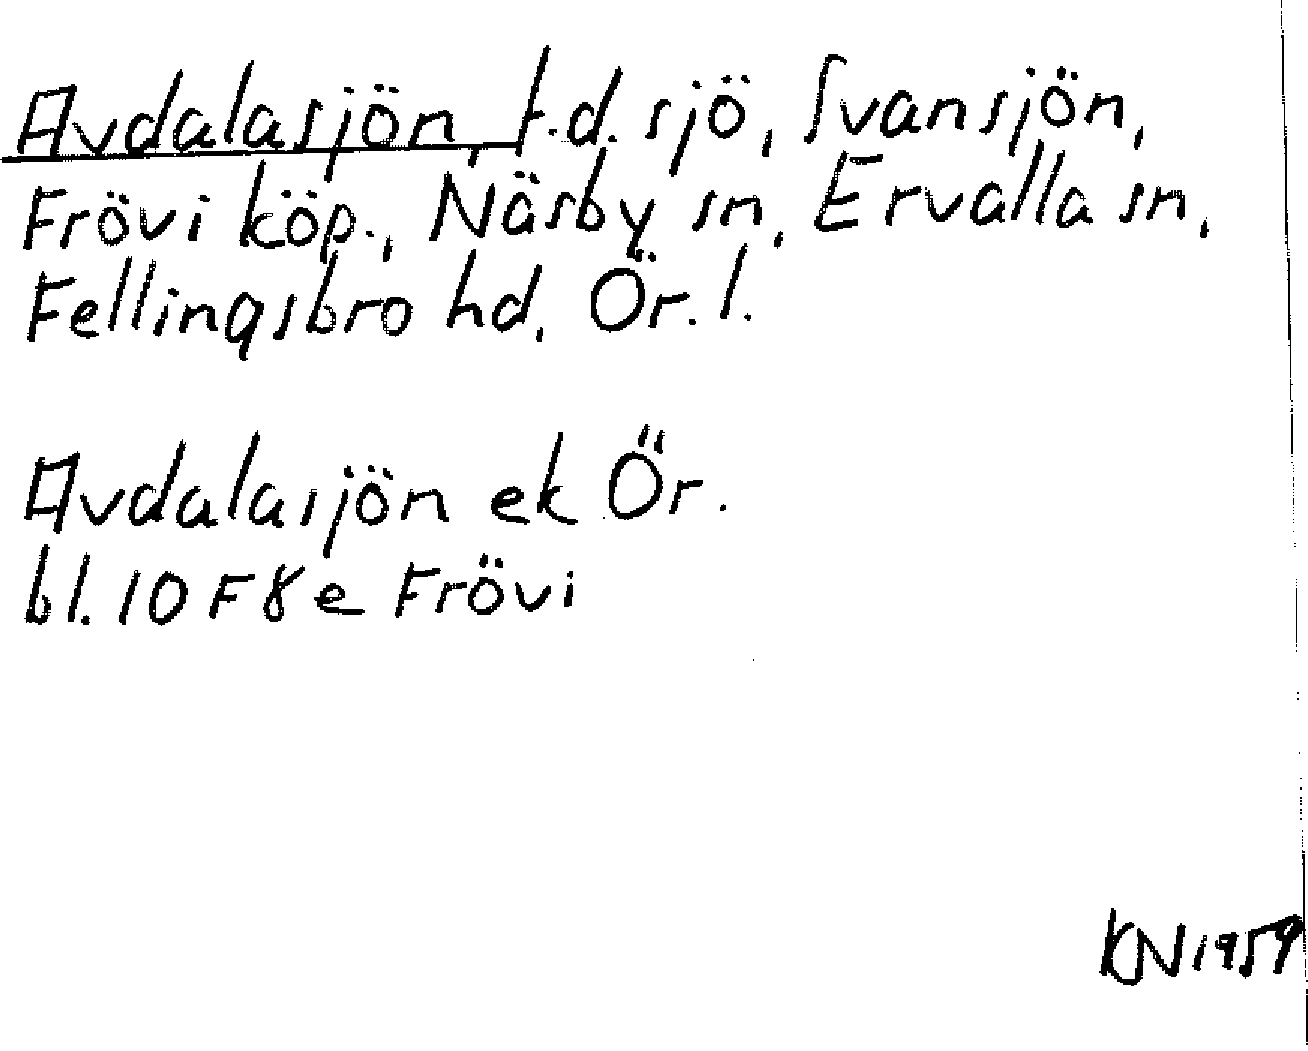 Avdalasjön, t.d. sjö, Svansjön,
Frövi köp., Näsby sn, Ervalla sn,
Fellingsbro hd, Ör. l.
Avdalasjön ek Ör.
bl. 10 F 8 e Frövi
KN 1959